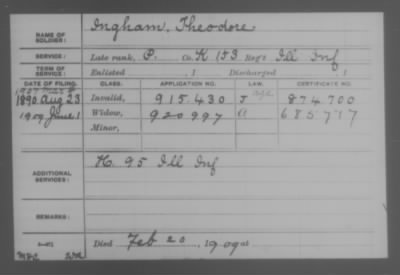 NAME OF SOLDIER: Ingham, Theodore
SERVICE: Late rank, P. Co. K 153 Reg't Ill Inf
TERM OF SERVICE: Enlisted , 1 Discharged , 1
DATE OF FILING. CLASS. APPLICATION NO. LAW. CERTIFICATE NO.
1907
1890 Aug 23 Invalid, 915.430 J 874.700
1909 June 1 Widow, 920997 685717
Minor,
ADDITIONAL SERVICES: K. 95 Ill Inf
REMARKS:
Died Feb 20, 1909